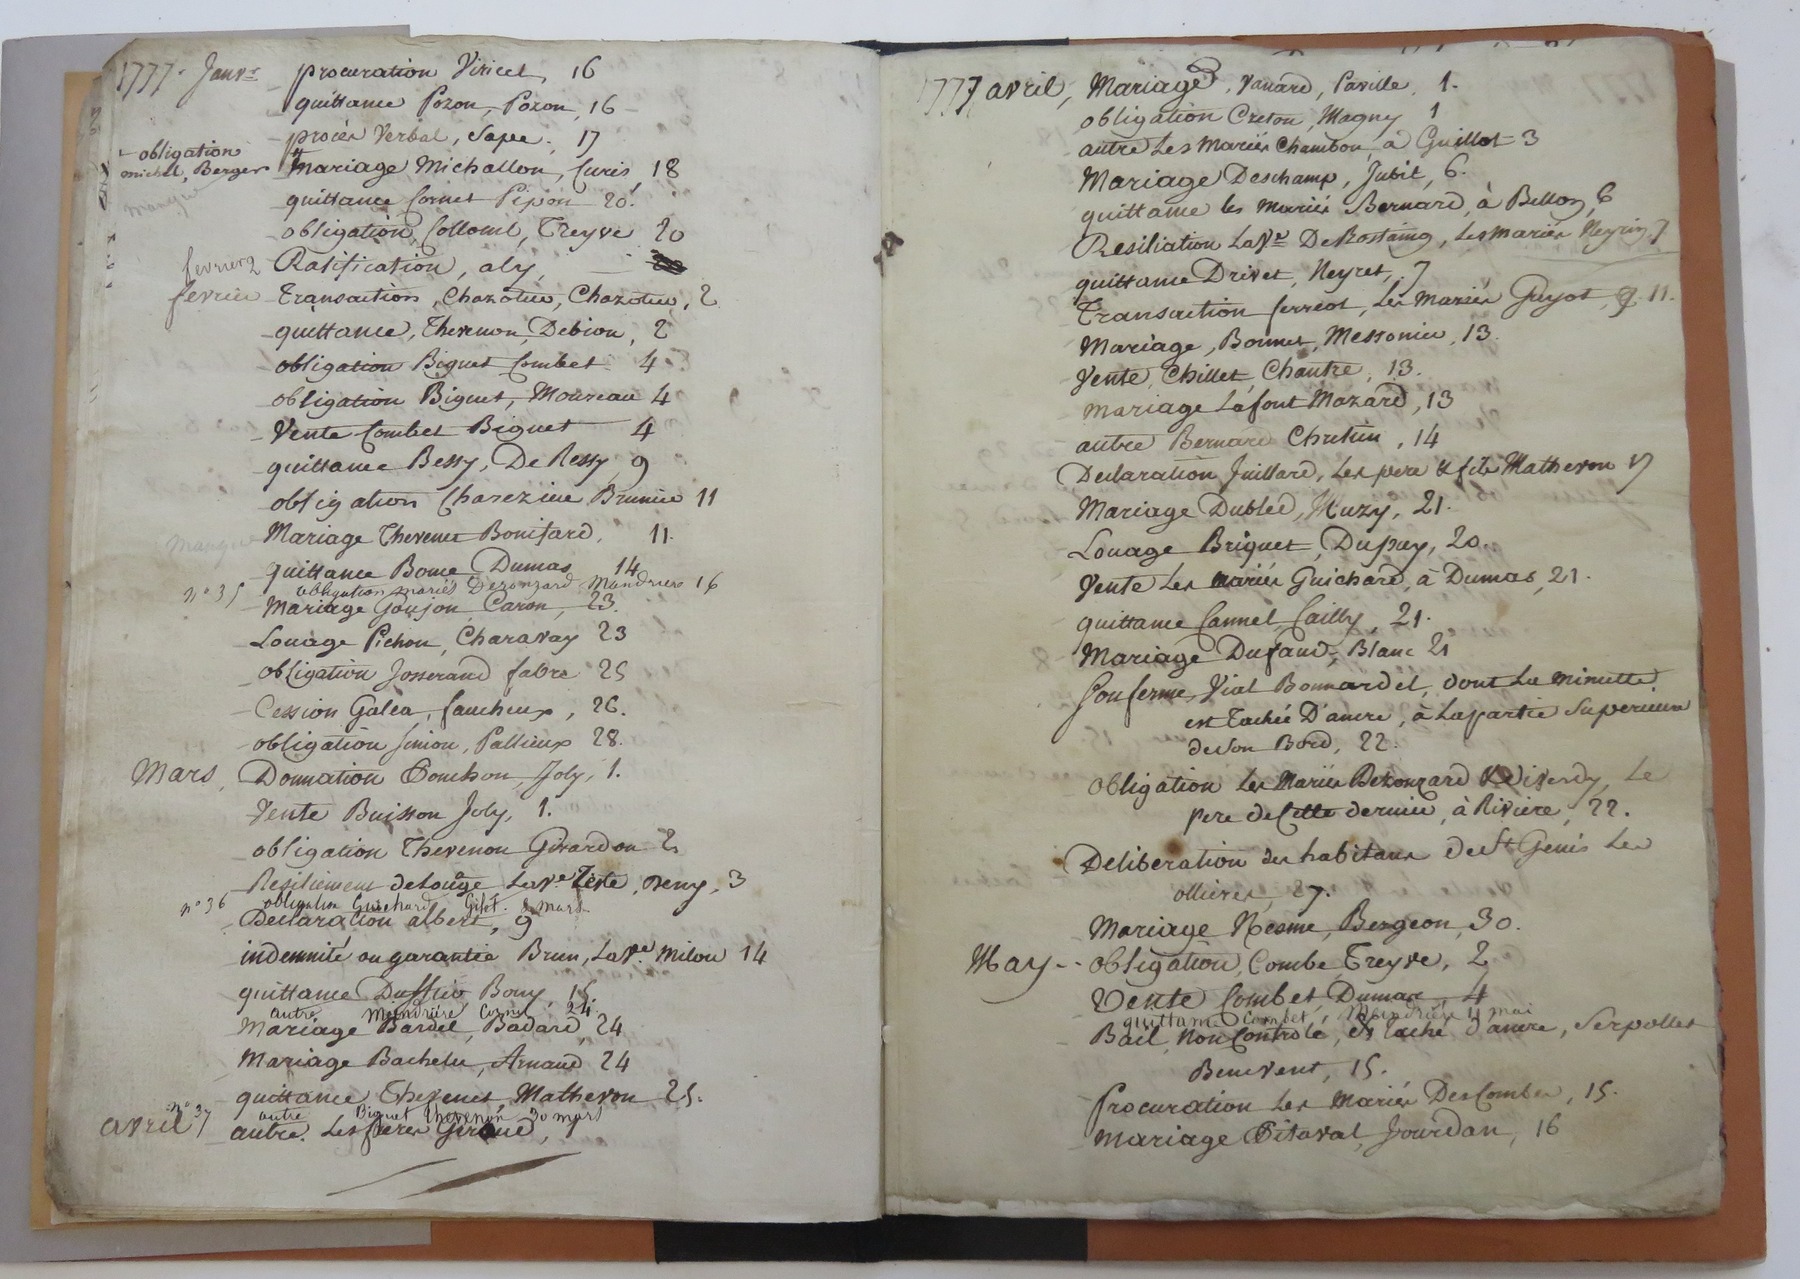 1777. Janv.r procuration Viricel, 16
quittance Pozon, Pozon, 16
procès Verbal, Sapee, 17
obligation
michel, Berger Mariage Michallon, Curis, 18
manque quittance Cornet Pipon 20.
obligation, Collomb, Treyve 20
fevrier 2 Ratification, aly,
fevrier Transaction, Chazotier, Chazotier, 2
quittance, Thevenon, Debion, 2
obligation Biguet Combet 4
obligation Biguet, Moureau 4
Vente Combet Biguet 4
quittance Bessy, De Ressy, 9
obligation Charezieu Brunier 11
manque Mariage Thevenet Bonifard, 11.
quittance Dumas 14
n° 35 obligation mariés Dezongard Mandriere 16
Mariage Goujon, Caron, 23.
Louage Pichon, Charavay 23
obligation Josserand fabre 25
Cession Galea, faucheux, 26.
obligation Simon, Pallieux 28.
Mars, Donnation Ponchon, Joly, 1.
Vente Buisson Joly, 1.
obligation Thevenon Girardon 2
Resiliement de Louage La ve Teste, 3
n° 36 obligation Guichard Gilot. 8 mars
Declaration albert, 9
indemnité ou garantie Brun, La Ve. Milou 14
quittance Bony, 15.
autre Mandriere Cornu 24.
Mariage Bardel, Badard, 24
Mariage Bachelu, Arnaud 24
quittance Thevenet, Matheron 25.
n° 37 autre Biguet Thevenon 30 mars
avril autre. Les freres Giraud, 1
1777 avril, Mariage, Vanard, Laville, 1.
obligation Creson, Magny 1
autre Les Mariés Chambon, à Guillot 3
Mariage Deschamp, Jubit, 6.
quittance les Mariés Bernard, à Bellon, 6
Resiliation La Ve DeRostaing, Les Mariés Neyrin, 7
quittance Drivet, Neyret, 7
Transaction ferreol, Les Mariés Guyot, 11.
Mariage, Bonnet, Messonier, 13.
Vente, Chillet, Chantre, 13.
Mariage Lafont Mazard, 13
autre Bernard Chretien, 14
Declaration Juillard, Les pere & fils Matheron 17
Mariage Dubled, Muzy, 21.
Louage Briquet, Dupuy, 20.
Vente Les Mariés Guichard, à Dumas, 21.
quittance Cannel, Cailly, 21.
Mariage Dufaud, Blanc 21
Vial Bonnardel, dont La minutte
est tachée D'ancre, à La partie Superieure
de son Bord, 22.
obligation Les Mariés Dezongard Le
pere de Cette derniere, à Riviere, 22.
Deliberation des habitans de St Genis Les
ollieres, 27.
Mariage Nesme, Bergeon, 30.
May .. obligation, Combe, Treyve, 2
Vente Combet Dumas 4
quittance Combet, Mandriere 11 mai
Bail, Non Controlé, & taché d'ancre, Serpollet
Benevent, 15.
procuration Les Mariés DesCombes, 15.
Mariage Pitaval, Jourdan, 16